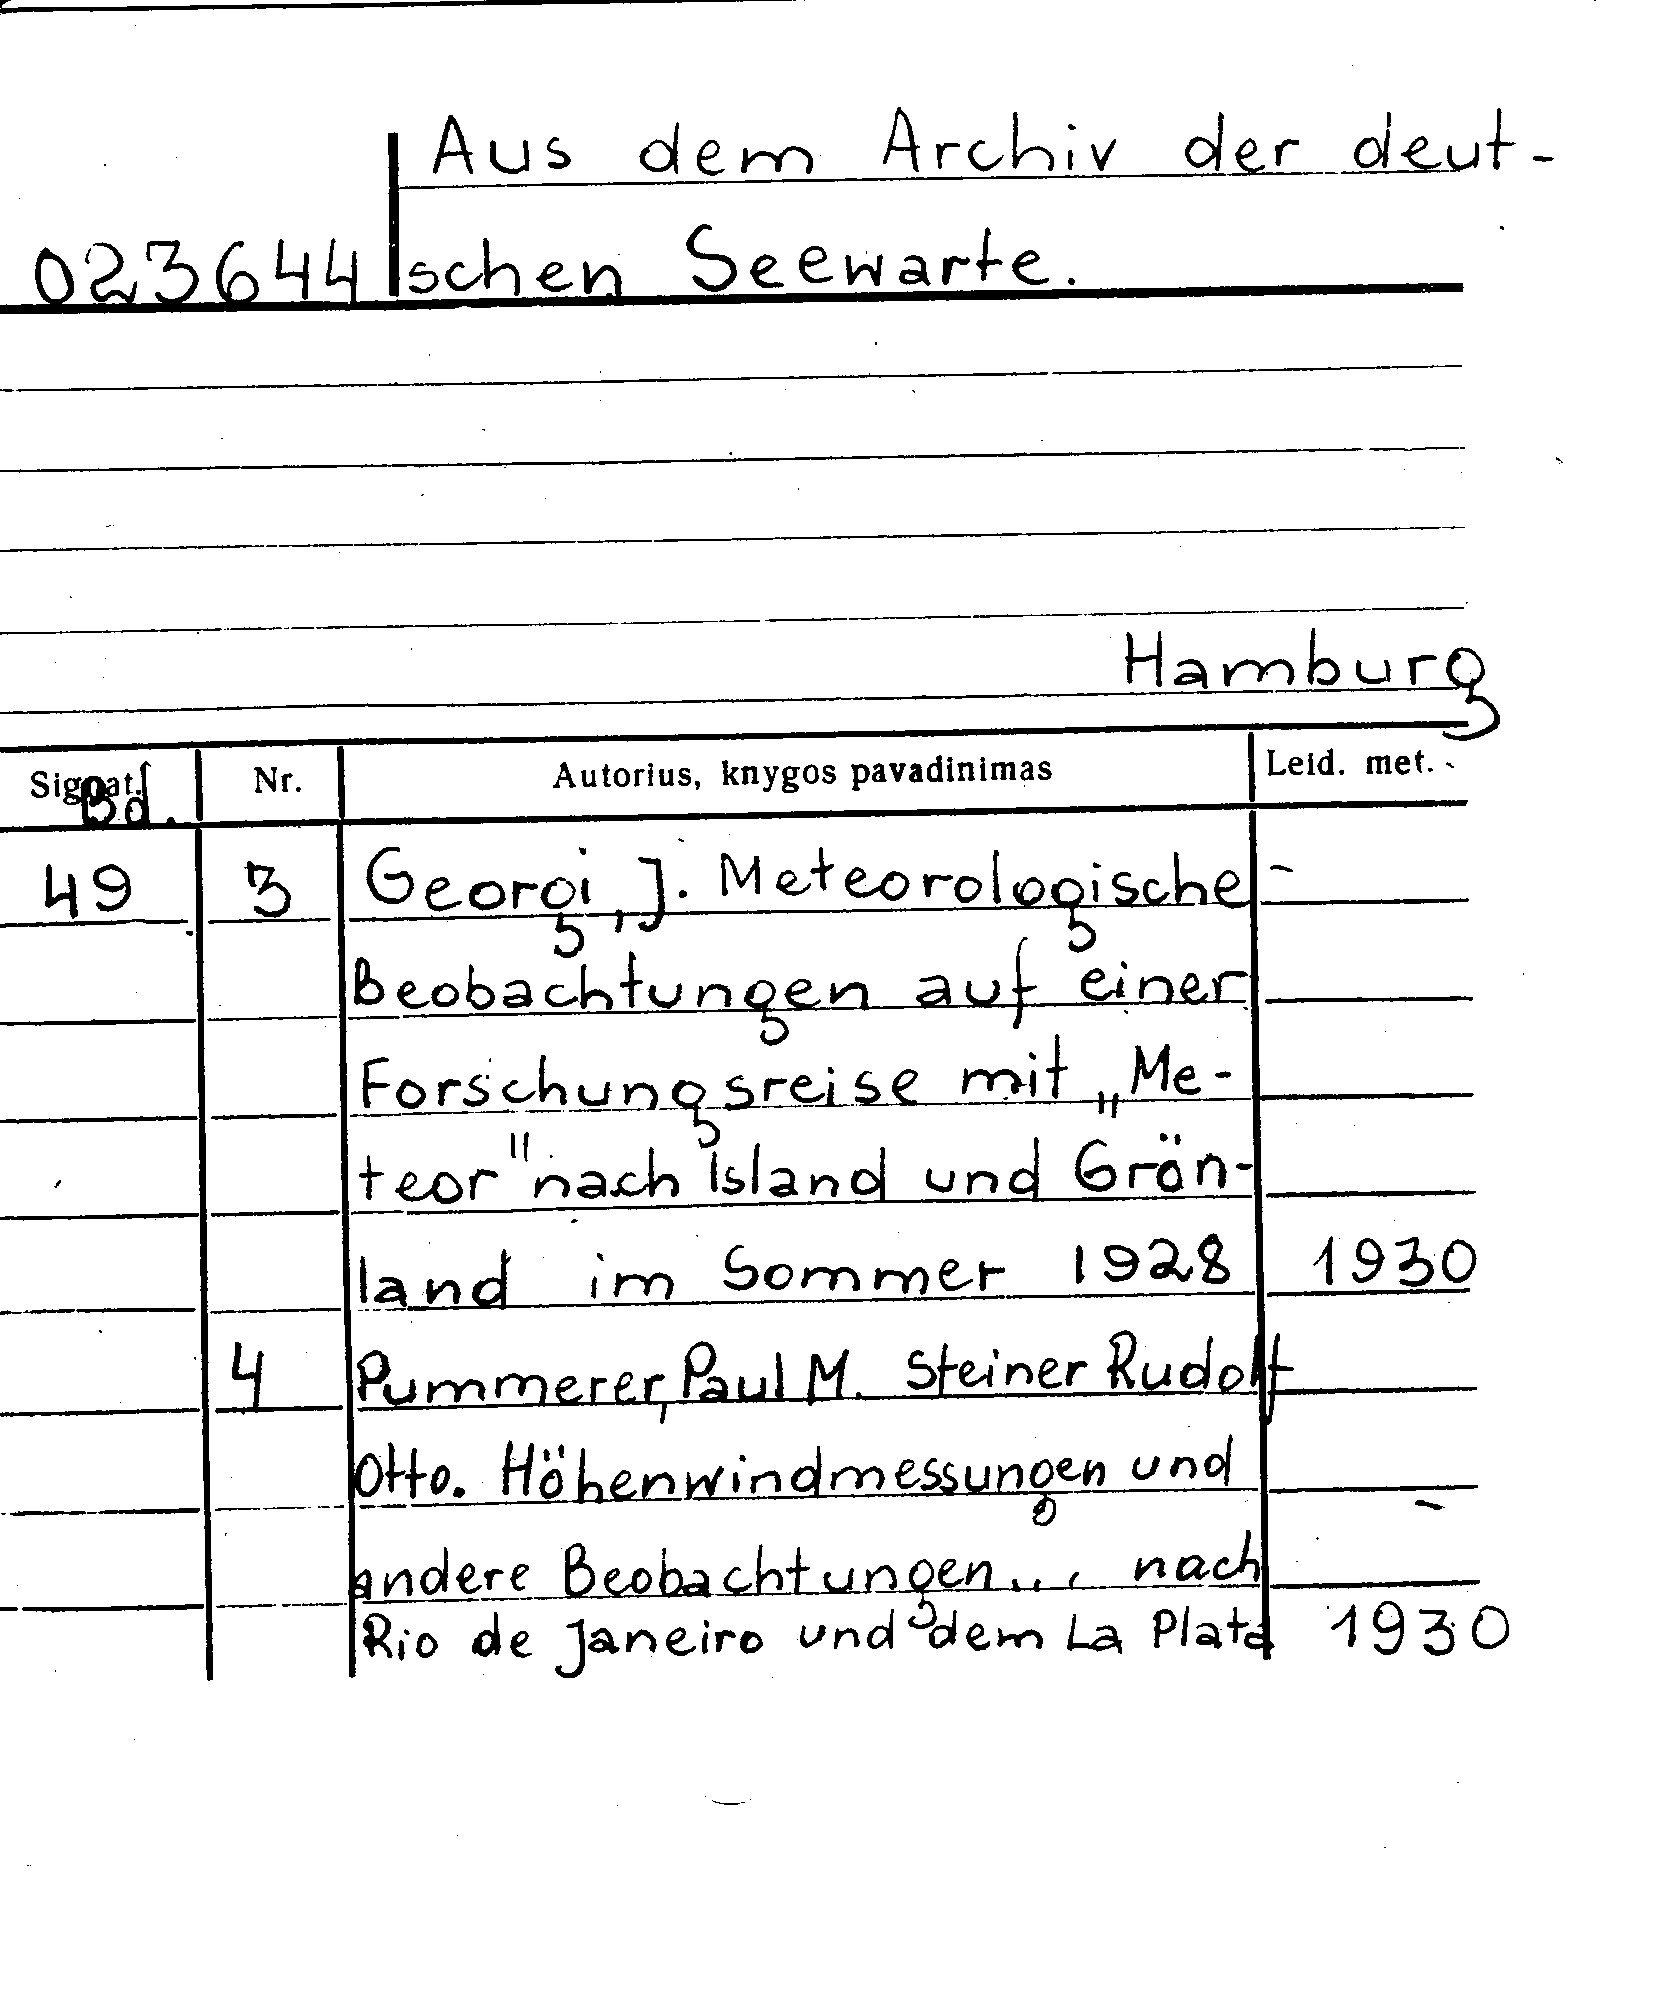 Aus dem Archiv der deut-
023644 schen Seewarte.
Hamburg
Signat. Bd. Nr. Autorius, knygos pavadinimas Leid. met.
49 3 Georgi, J. Meteorologische -
Beobachtungen auf einer
Forschungsreise mit „Me-
teor" nach Island und Grön-
land im Sommer 1928 1930
4 Pummerer, Paul M. Steiner Rudolf
Otto. Höhenwindmessungen und
andere Beobachtungen... nach
Rio de Janeiro und dem La Plata 1930